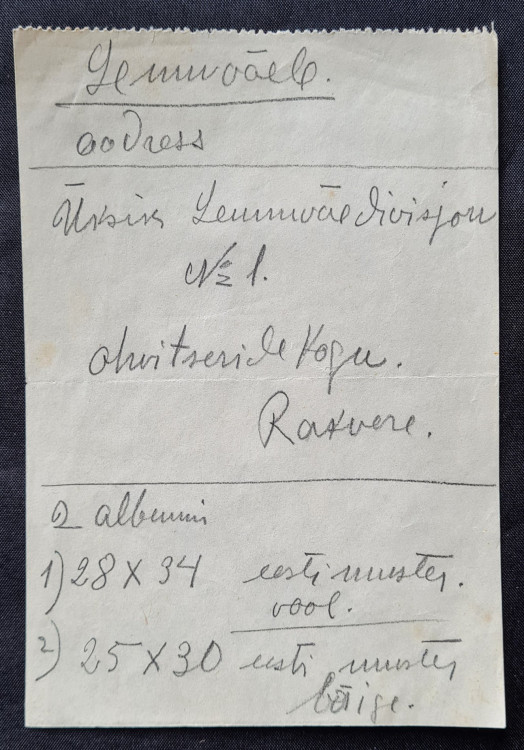 Lennuväele.
aadress
Üksik Lennuväe divisjon
№ 1.
ohvitseride Kogu.
Rakvere.
2 albumi
1) 28 X 34 eesti muster.
vööl.
2) 25 X 30 eesti muster